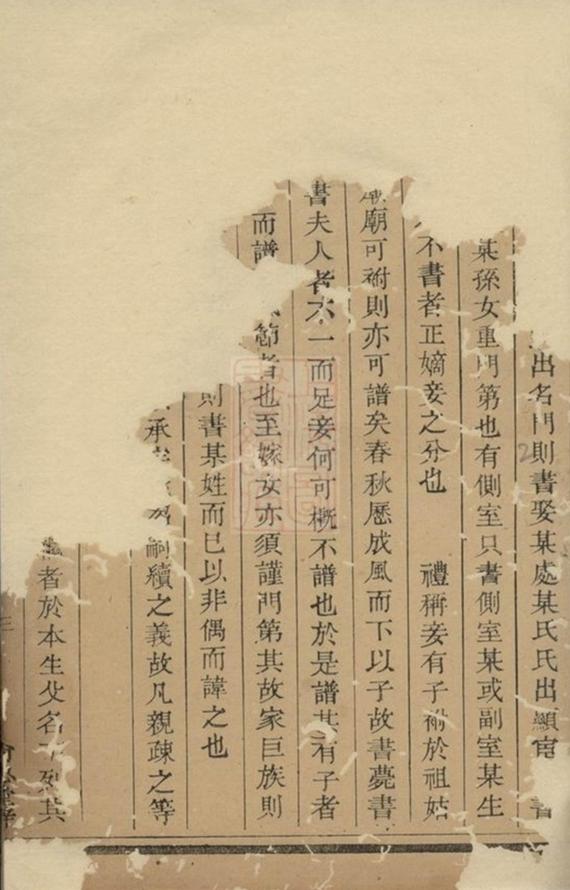 出名門則書娶某處某氏氏出顯宦 書
某孫女重門第也有側室只書側室某或副室某生
不書者正嫡妾之分也 禮稱妾有子祔於祖姑
廟可祔則亦可譜矣春秋歷成風而下以子故書薨書
書夫人者不一而足妾何可概不譜也於是譜其有子者
而譜 節者也至嫁女亦須謹門第其故家巨族則
則書某姓而已以非偶而諱之也
承 嗣續之義故凡親疎之等
者於本生父名下列其